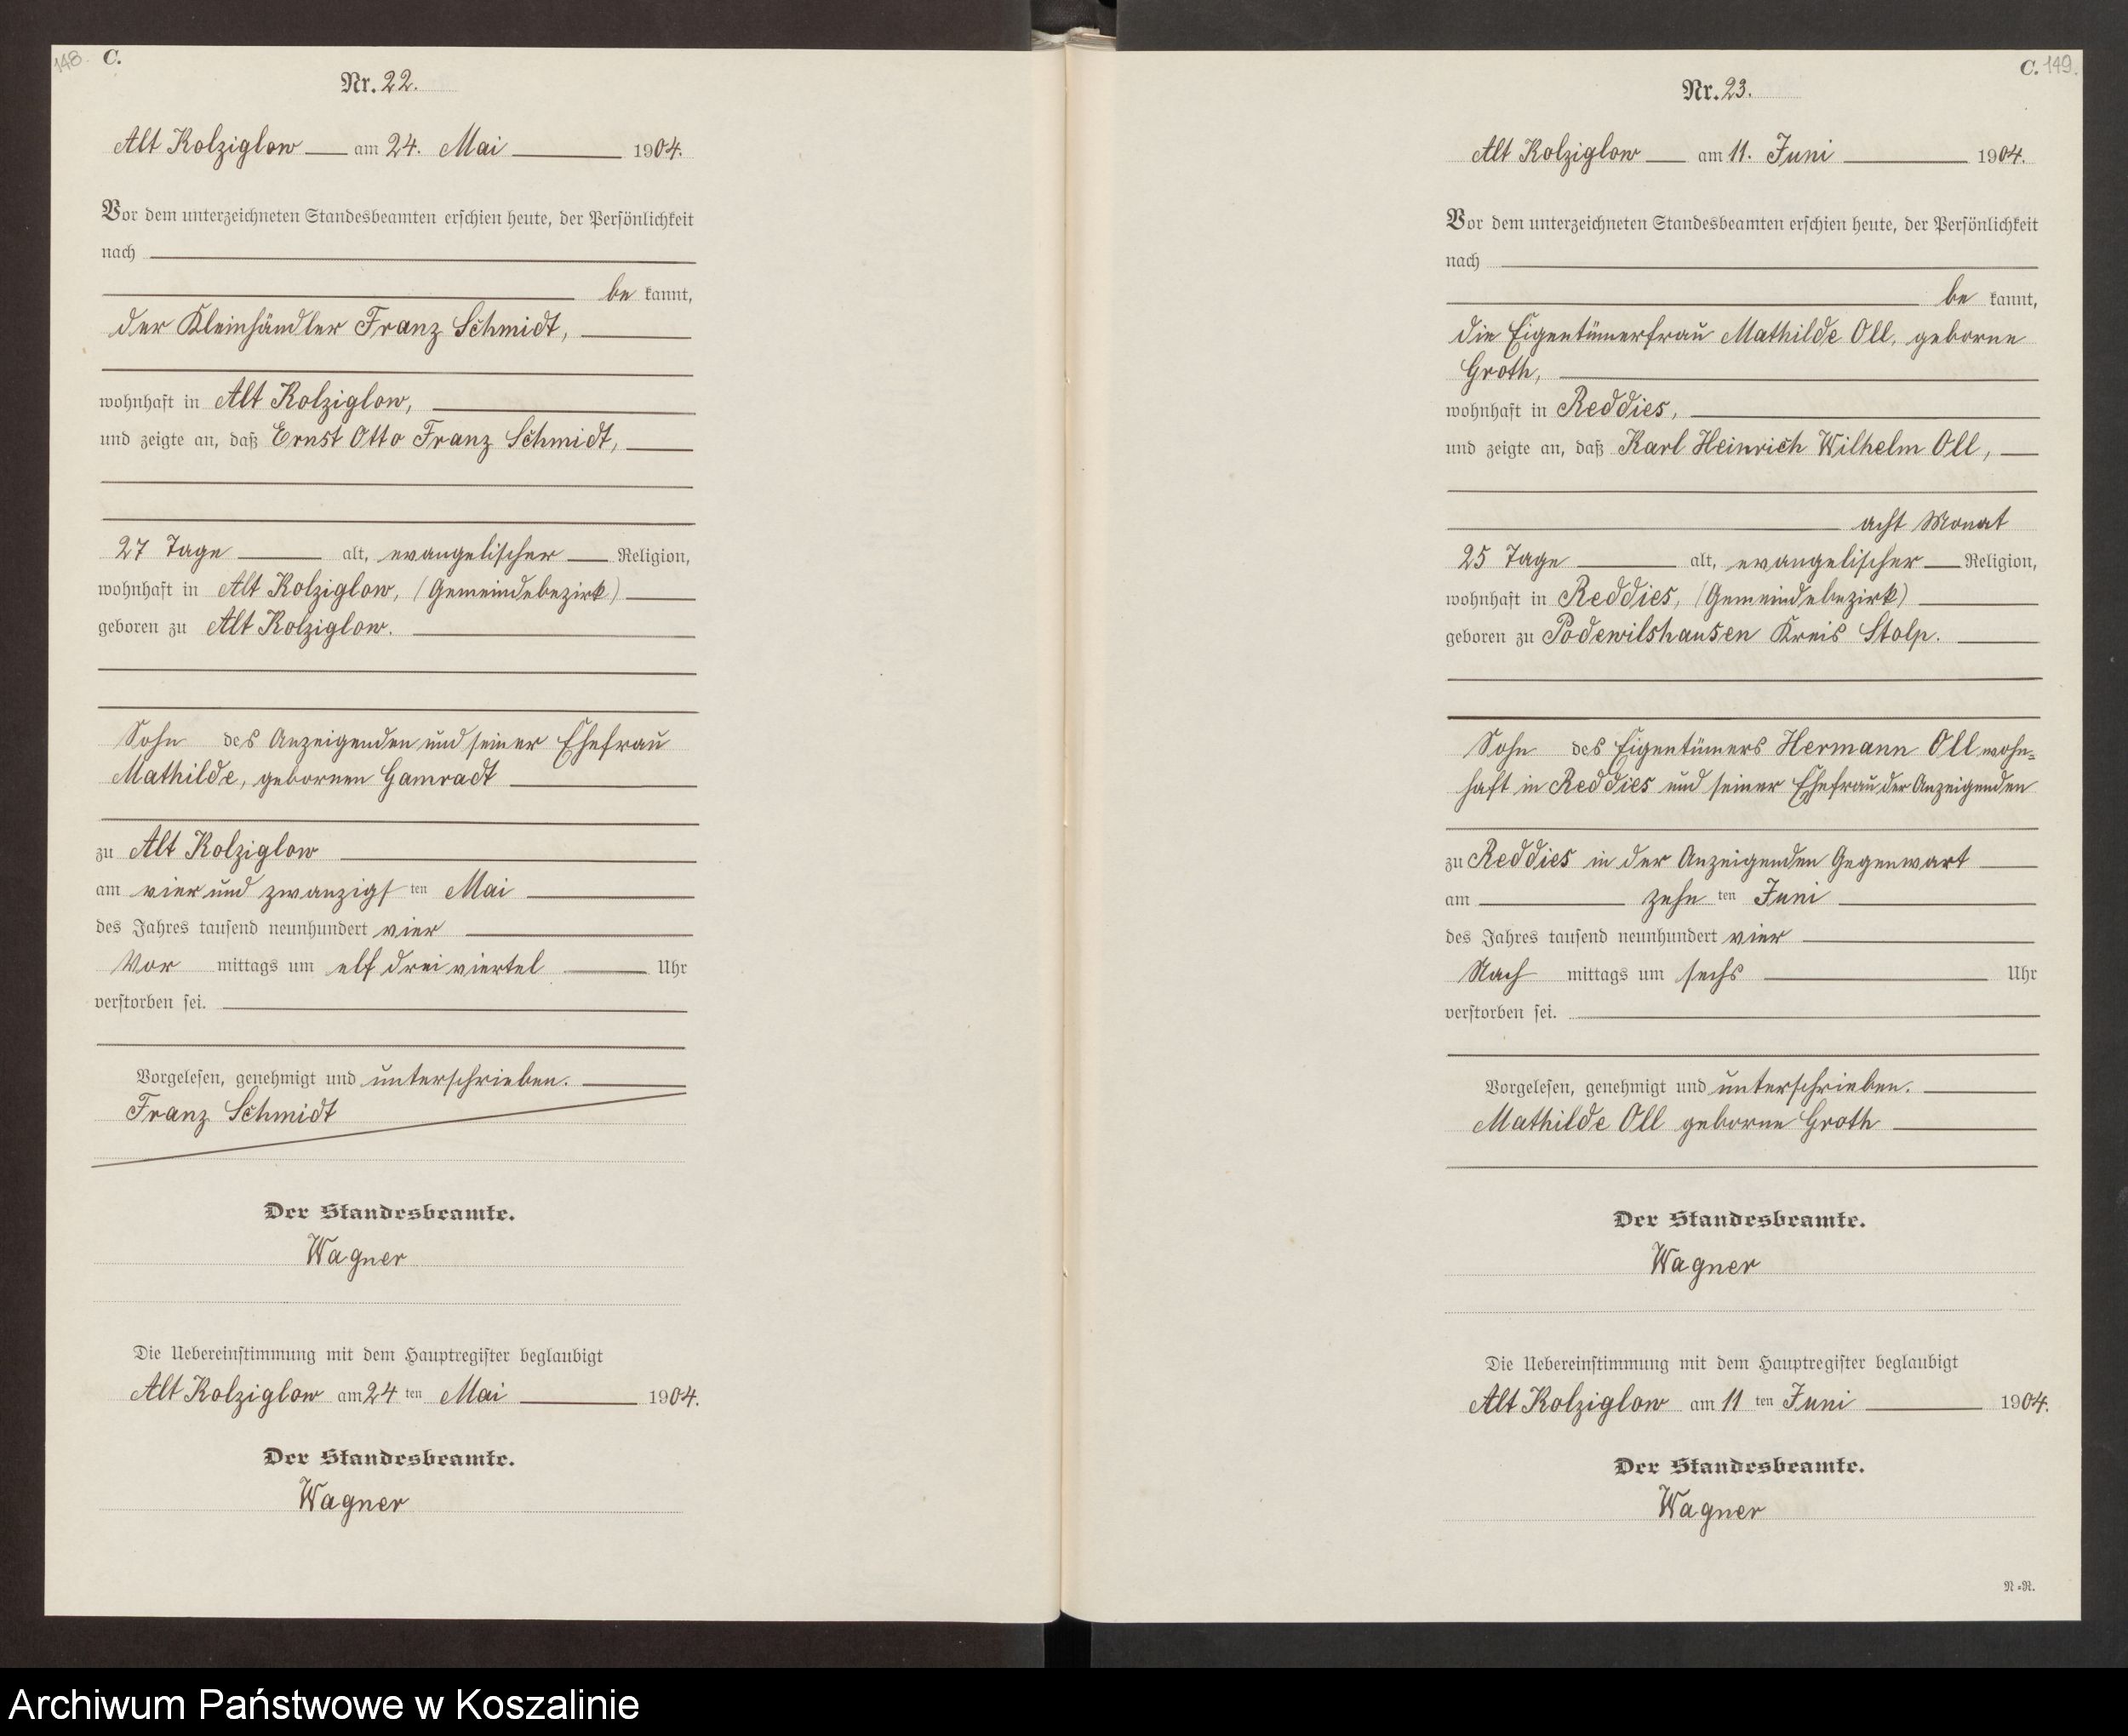 148. C.
Nr. 22.
Alt Kolziglow am 24. Mai 1904.
Vor dem unterzeichneten Standesbeamten erschien heute, der Persönlichkeit
nach
be kannt,
der Kleinhändler Franz Schmidt,
wohnhaft in Alt Kolziglow,
und zeigte an, daß Ernst Otto Franz Schmidt,
27 Tage alt, evangelischer Religion,
wohnhaft in Alt Kolziglow, (Gemeindebezirk)
geboren zu Alt Kolziglow.
Sohn des Anzeigenden und seiner Ehefrau
Mathilde, gebornen Gamradt
zu Alt Kolziglow
am vier und zwanzigs ten Mai
des Jahres tausend neunhundert vier
Vor mittags um elf drei viertel Uhr
verstorben sei.
Vorgelesen, genehmigt und unterschrieben.
Franz Schmidt
Der Standesbeamte.
Wagner
Die Uebereinstimmung mit dem Hauptregister beglaubigt
Alt Kolziglow am 24 ten Mai 1904.
Der Standesbeamte.
Wagner
C. 149.
Nr. 23.
Alt Kolziglow am 11. Juni 1904.
Vor dem unterzeichneten Standesbeamten erschien heute, der Persönlichkeit
nach
be kannt,
die Eigentümerfrau Mathilde Oll, geborne
Groth,
wohnhaft in Reddies,
und zeigte an, daß Karl Heinrich Wilhelm Oll,
acht Monat
25 Tage alt, evangelischer Religion,
wohnhaft in Reddies, (Gemeindebezirk)
geboren zu Podewilshausen Kreis Stolp.
Sohn des Eigentümers Hermann Oll wohn-
haft in Reddies und seiner Ehefrau der Anzeigenden
zu Reddies in der Anzeigenden Gegenwart
am zehn ten Juni
des Jahres tausend neunhundert vier
Nach mittags um sechs Uhr
verstorben sei.
Vorgelesen, genehmigt und unterschrieben.
Mathilde Oll geborne Groth
Der Standesbeamte.
Wagner
Die Uebereinstimmung mit dem Hauptregister beglaubigt
Alt Kolziglow am 11 ten Juni 1904.
Der Standesbeamte.
Wagner
N=R.
Archiwum Państwowe w Koszalinie